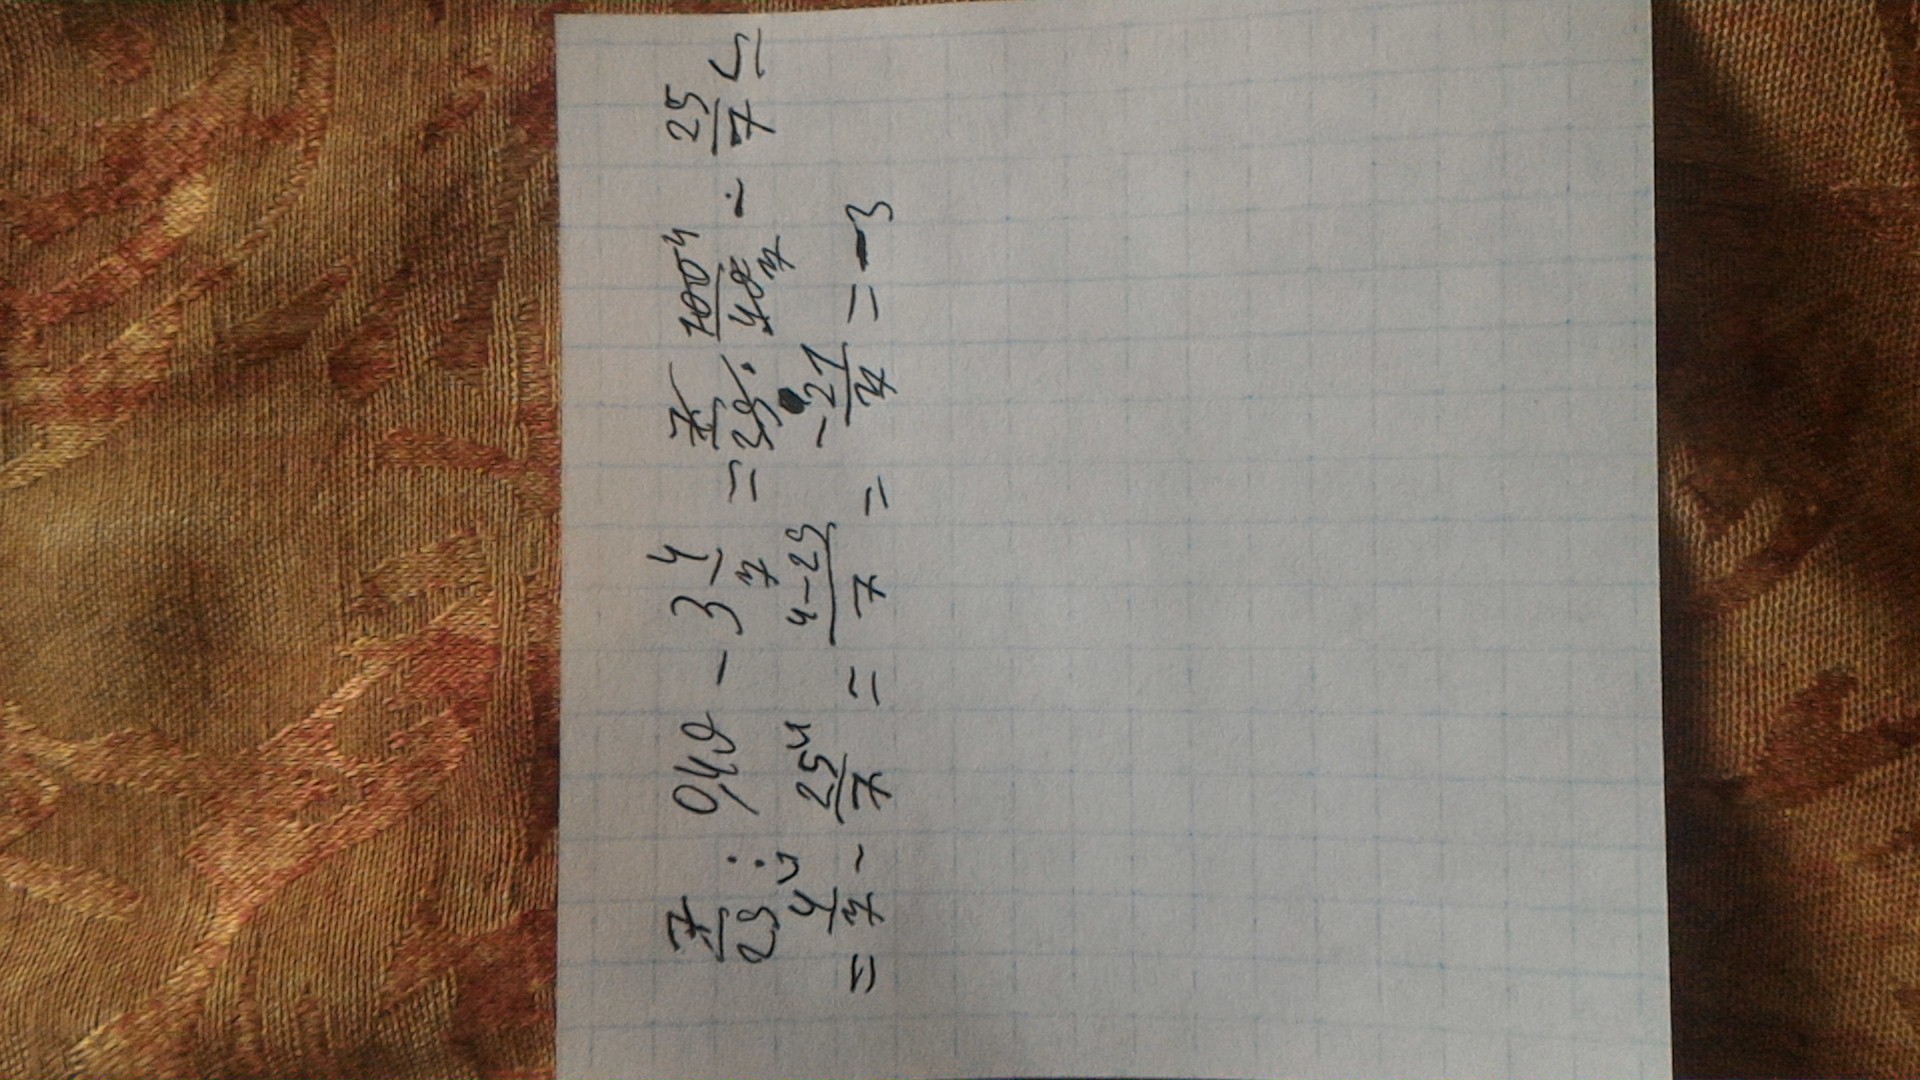 7/25 : 0,49 - 3 4/7 = 7/25 · 100 4/49 7 - 25/7 =
= 4/7 - 25/7 = 4-25/7 = -21/7 = -3